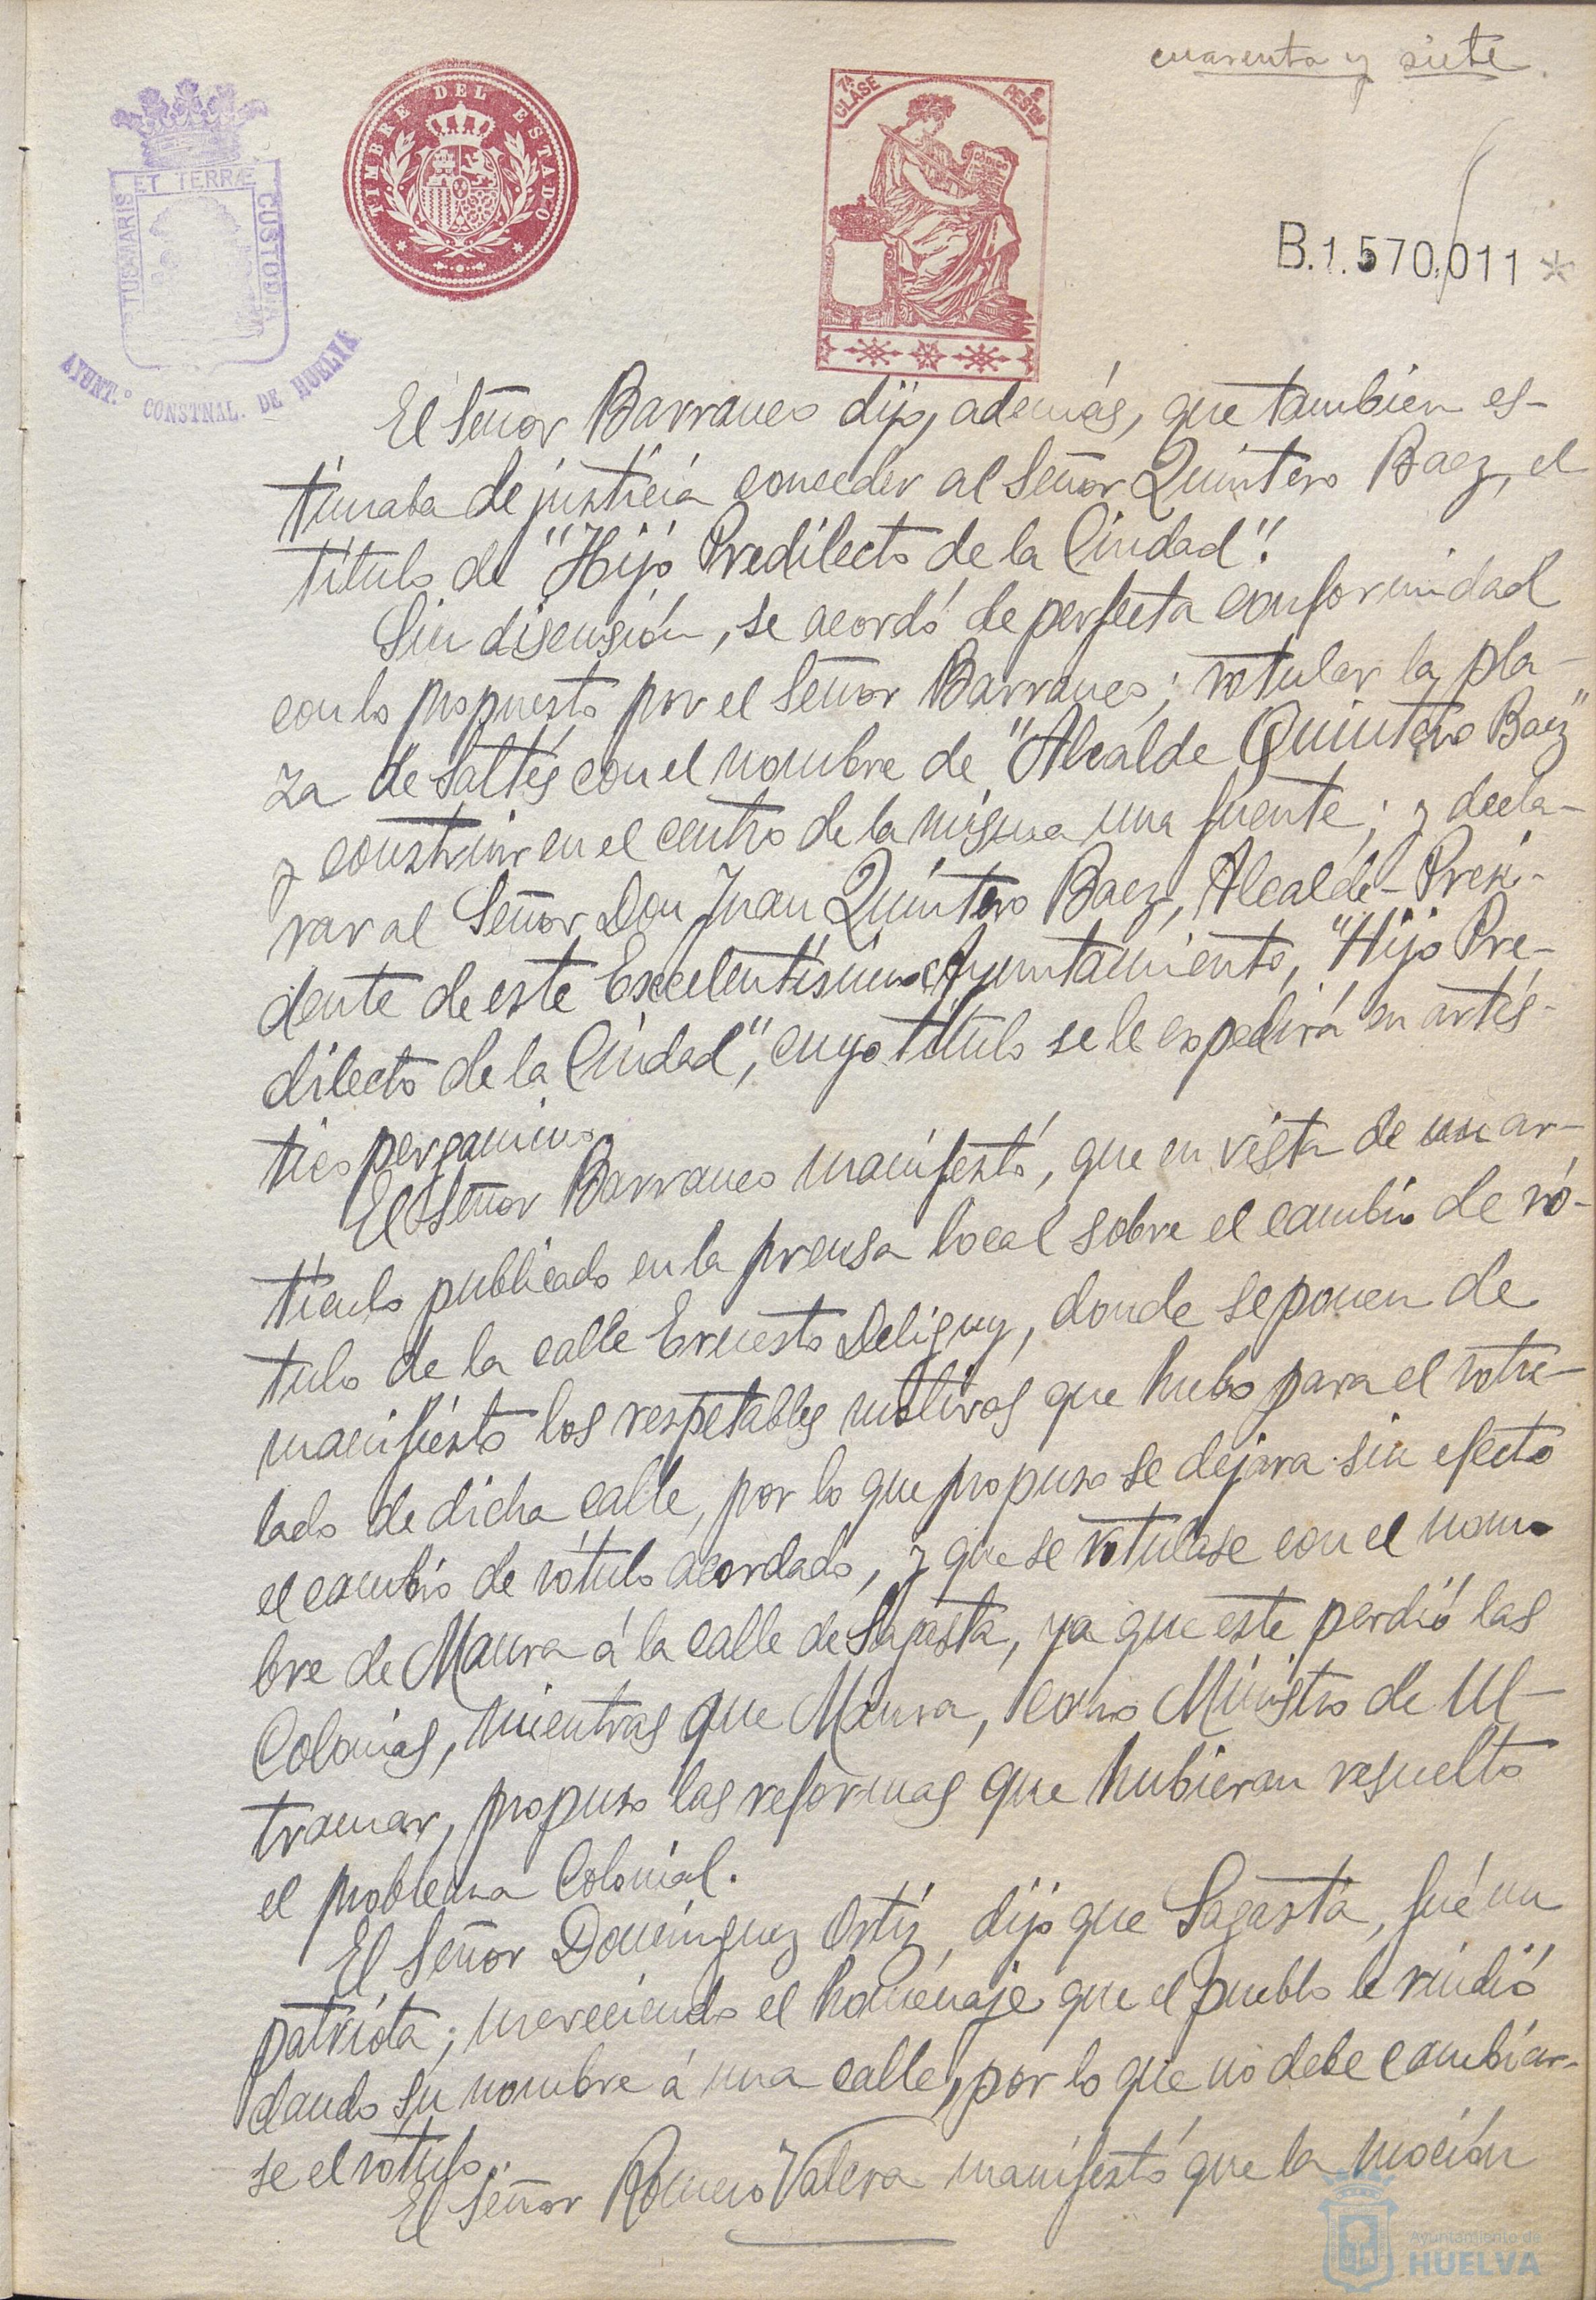 cuarenta y siete
TIMBRE DEL ESTADO
1ª CLASE
PESETAS
CÓDIGO
PORTUS MARIS ET TERRÆ CUSTODIA
AYUNT.º CONSTNAL. DE HUELVA
B.1.570.011 *
El Señor Barranco dijo, además, que también es-
timaba de justicia conceder al Señor Quintero Baez, el
título de "Hijo Predilecto de la Ciudad".
Sin discusión, se acordó de perfecta conformidad
con lo propuesto por el Señor Barranco; rotular la pla-
za de Saltés con el nombre de "Alcalde Quintero Baez"
y construir en el centro de la misma una fuente; y decla-
rar al Señor Don Juan Quintero Baez, Alcalde-Presi-
dente de este Excelentísimo Ayuntamiento, "Hijo Pre-
dilecto de la Ciudad", cuyo título se le expedirá en artís-
tico pergamino.
El Señor Barranco manifestó, que en vista de un ar-
tículo publicado en la prensa local sobre el cambio de ró-
tulo de la calle Ernesto Deligny, donde se ponen de
manifiesto los respetables motivos que hubo para el rotu-
lado de dicha calle, por lo que propuso se dejara sin efecto
el cambio de rótulo acordado, y que se rotulase con el nom-
bre de Maura á la calle de Sagasta, ya que este perdió las
Colonias, mientras que Maura, como Ministro de Ul-
tramar, propuso las reformas que hubieran resuelto
el problema Colonial.
El Señor Domínguez Ortiz, dijo que Sagasta, fué un
patriota; mereciendo el homenaje que el pueblo le rindió
dando su nombre á una calle, por lo que no debe cambiar-
se el rótulo.
El Señor Romero Valera manifestó que la moción
Ayuntamiento de
HUELVA